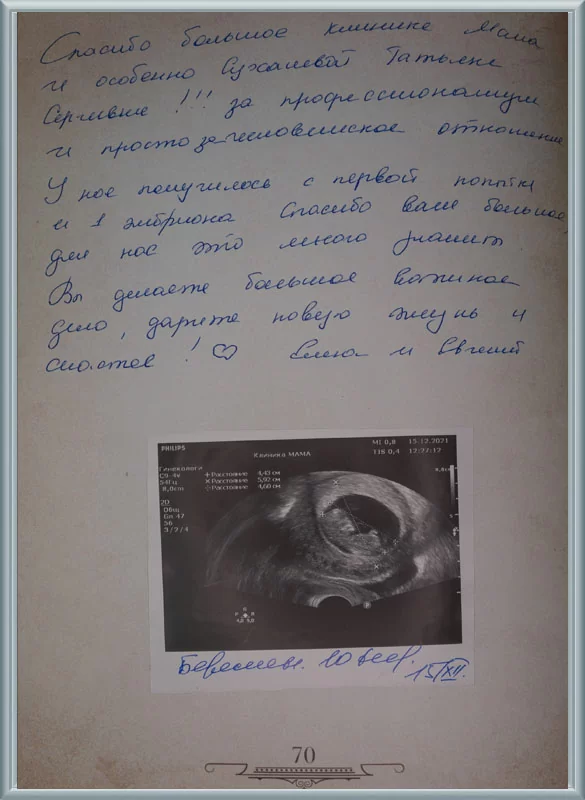 Спасибо большое клинике Мама
и особенно Сухалевой Татьяне
Сергеевне !!! за профессионализм
и просто за человеческое отношение
У нас получилось с первой попытки
и 1 эмбриона Спасибо вам большое,
для нас это много значит
Вы делаете большое важное
дело, дарите новую жизнь и
счастье ! ♡ Елена и Евгений
PHILIPS
Клиника МАМА
MI 0,8 15.12.2021
TIS 0,4 12:27:12
Гинекологи
C9-4v
54Гц
8,0cm
+ Расстояние 4,43 см
× Расстояние 5,92 см
Расстояние 4,60 см
2D
Общ
Gn 47
56
3/2/4
Беременн. 10 нед.
15/XII.
70